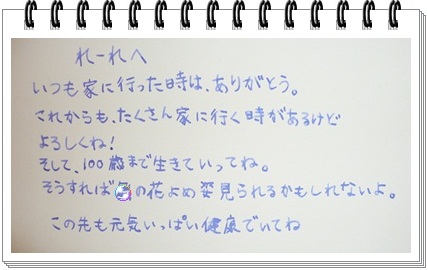 れーれへ
いつも家に行った時は、ありがとう。
これからも、たくさん家に行く時があるけど
よろしくね！
そして、100歳まで生きていってね。
そうすればの花よめ姿見られるかもしれないよ。
この先も元気いっぱい健康でいてね